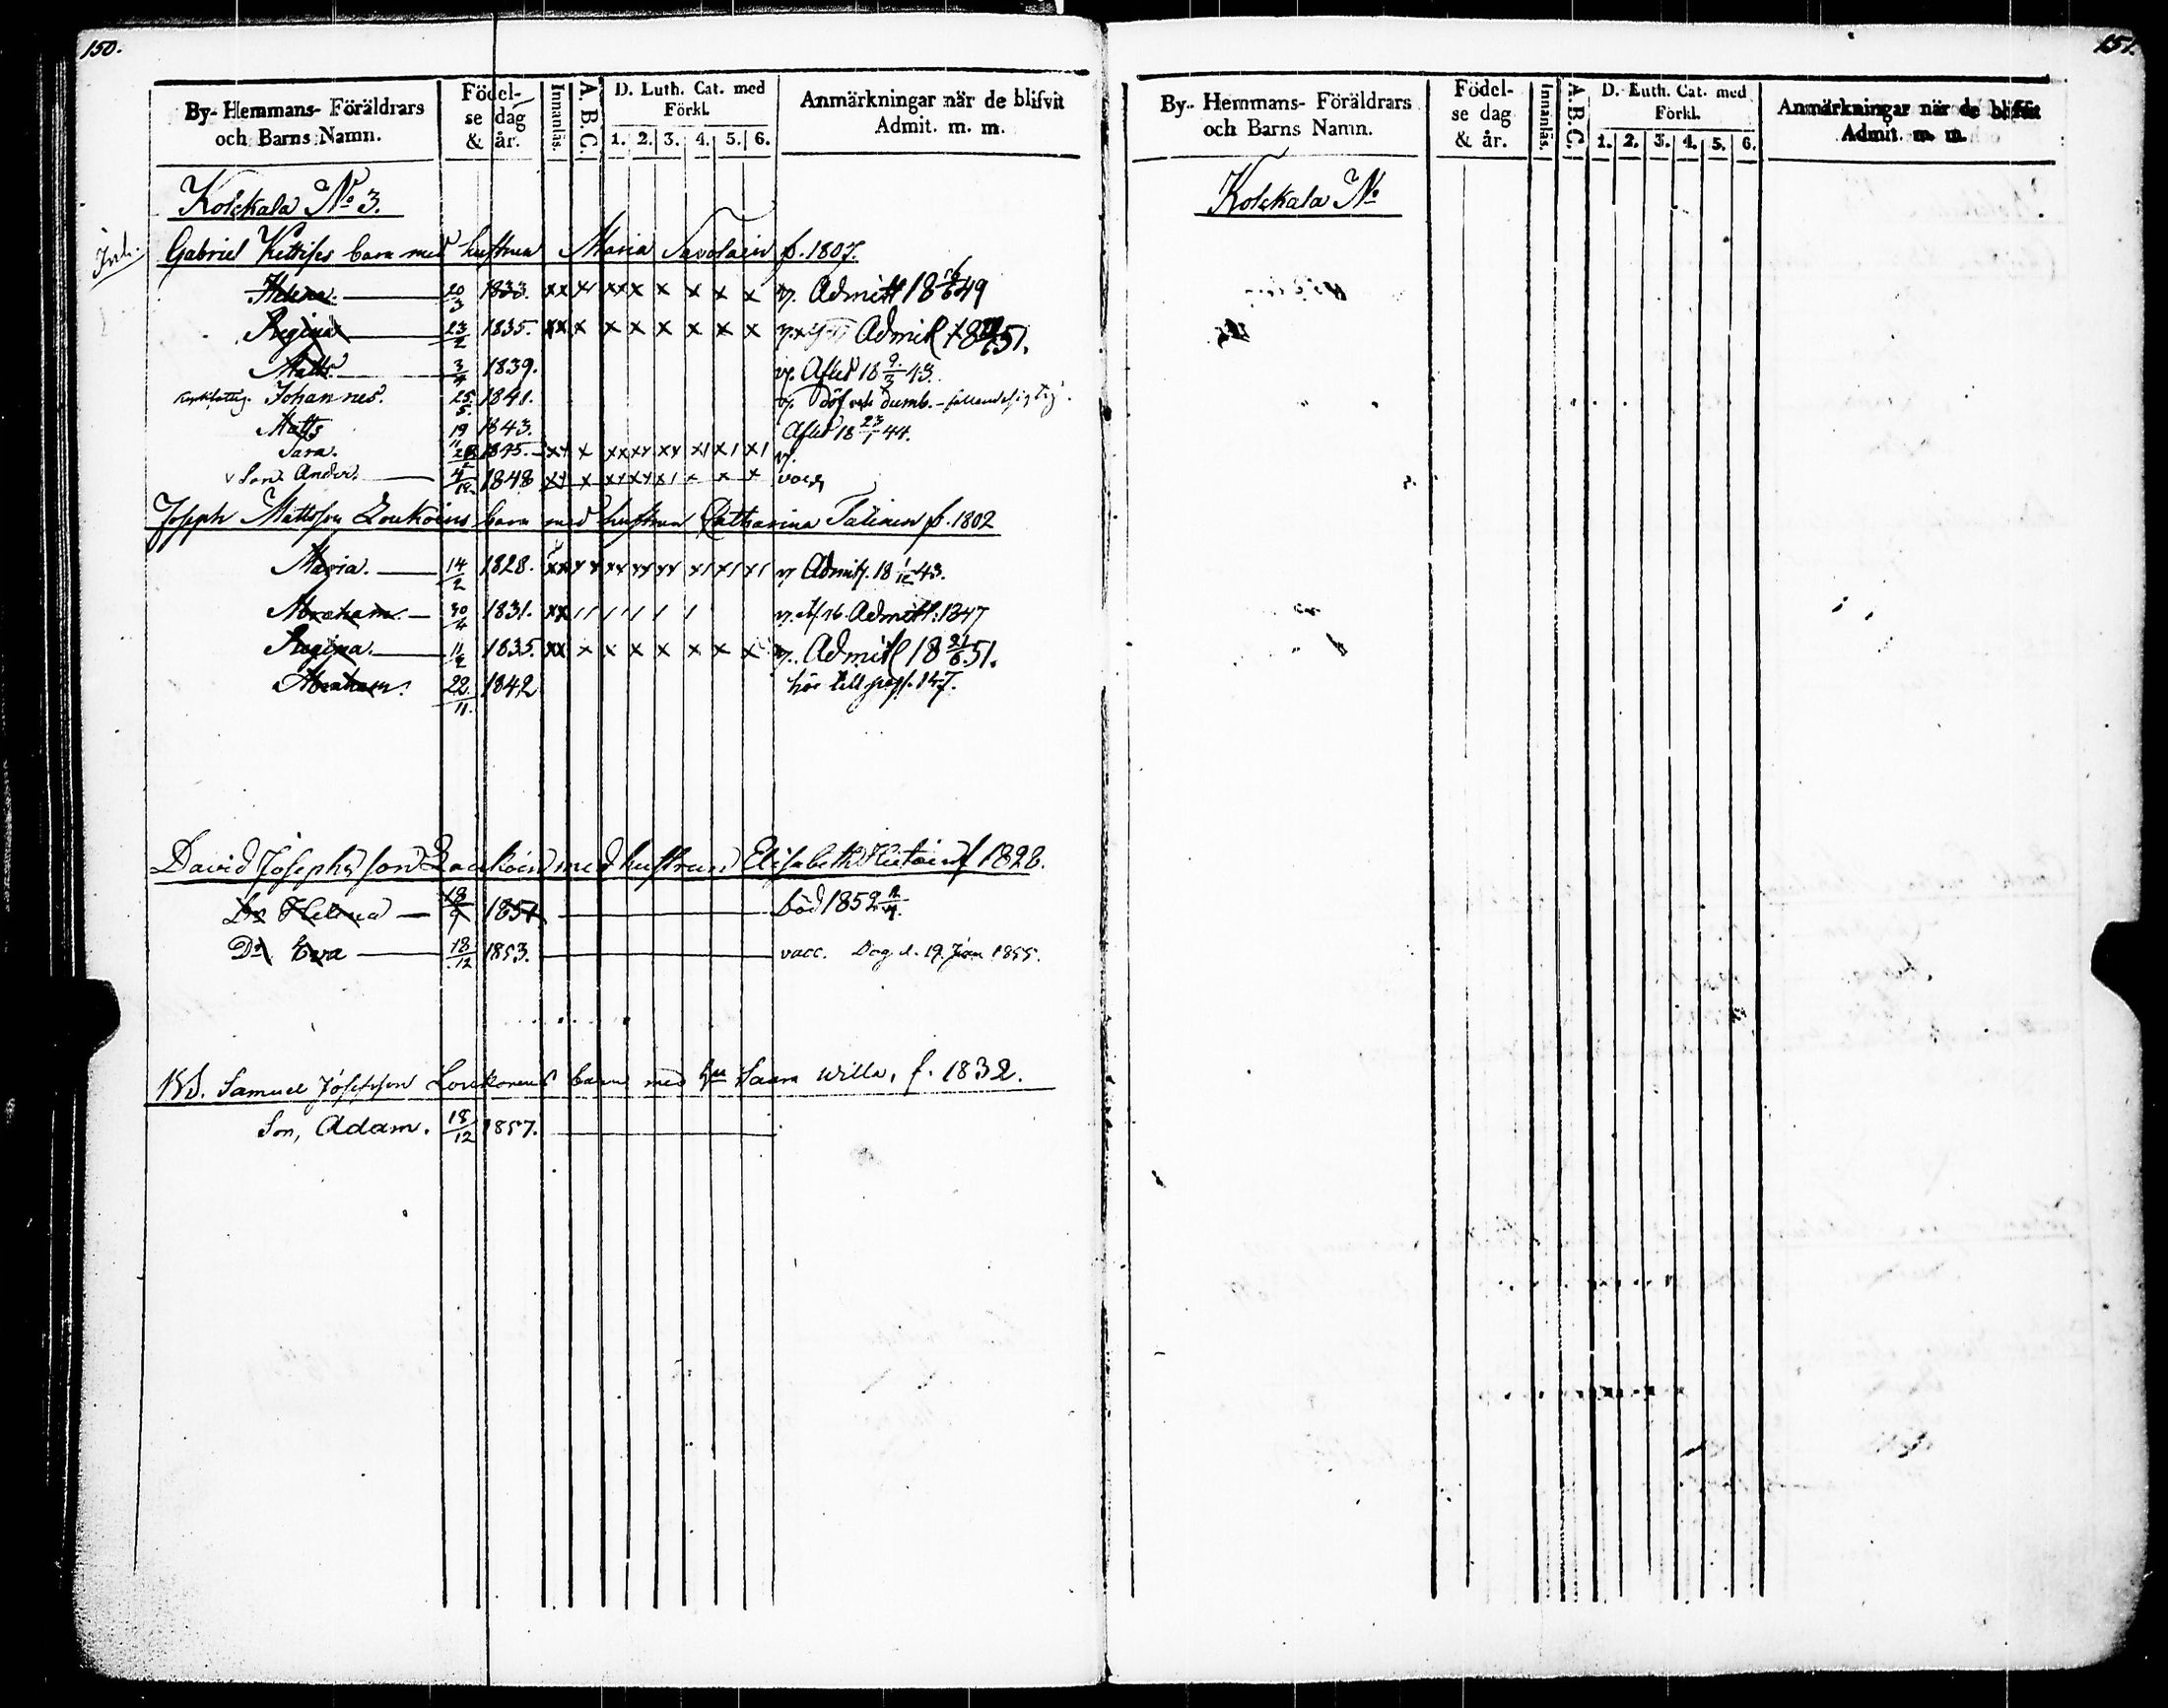 150.
By- Hemmans- Föräldrars och Barns Namn.
Födelse dag & år.
Innanläs.
A. B. C.
D. Luth. Cat. med Förkl.
1. 2. 3. 4. 5. 6.
Anmärkningar när de blifvit Admit. m. m.
Kolckala No 3.
Gabriel barn med hustrun Maria Savolain f. 1807.
Helena. 20/3 1833. xx xx xxx x x x x Admitt 18 49
Regina 23/2 1835. xx x x x x x x x Admitt 18 51.
Matts 3/4 1839. Afled 18 9/3 43.
Johannes. 25/5. 1841. Döf och dumb.
Matts 19/11 1843. Afled 18 23/1 44.
Sara. 1845. xx x xxxx xx x1 x1 x1
Son Ander. 4/12. 1848 xx x xxxxx1 x x x
Joseph Mattsson Loukoins barn med hustrun Catharina Talinen f. 1802
Maria. 14/2 1828. xxxx xx xx xx x1 x1 x1 Admitt. 18 1/12 43.
Abraham. 30/4 1831. xx / / / / / / Admitt. 1847
Regina. 11/2 1835. xx x x x x x x x Admitt 18 21/6. 51.
Abraham. 22/11. 1842 hör till pag. 147.
David Josephsson Loukoin med hustrun Elisabeth f 1828.
Dr Helena 18/9 1851 död 1852
Dr. Eva 18/12 1853. vacc. Dog d. 19. Juni 1855.
Samuel Josefsson Loukonens barn med hu Saara Willa, f. 1832.
Son, Adam. 18/12 1857.
151.
By- Hemmans- Föräldrars och Barns Namn.
Födelse dag & år.
Innanläs.
A. B. C.
D. Luth. Cat. med Förkl.
1. 2. 3. 4. 5. 6.
Anmärkningar när de blifvit Admit. m. m.
Kolckala No